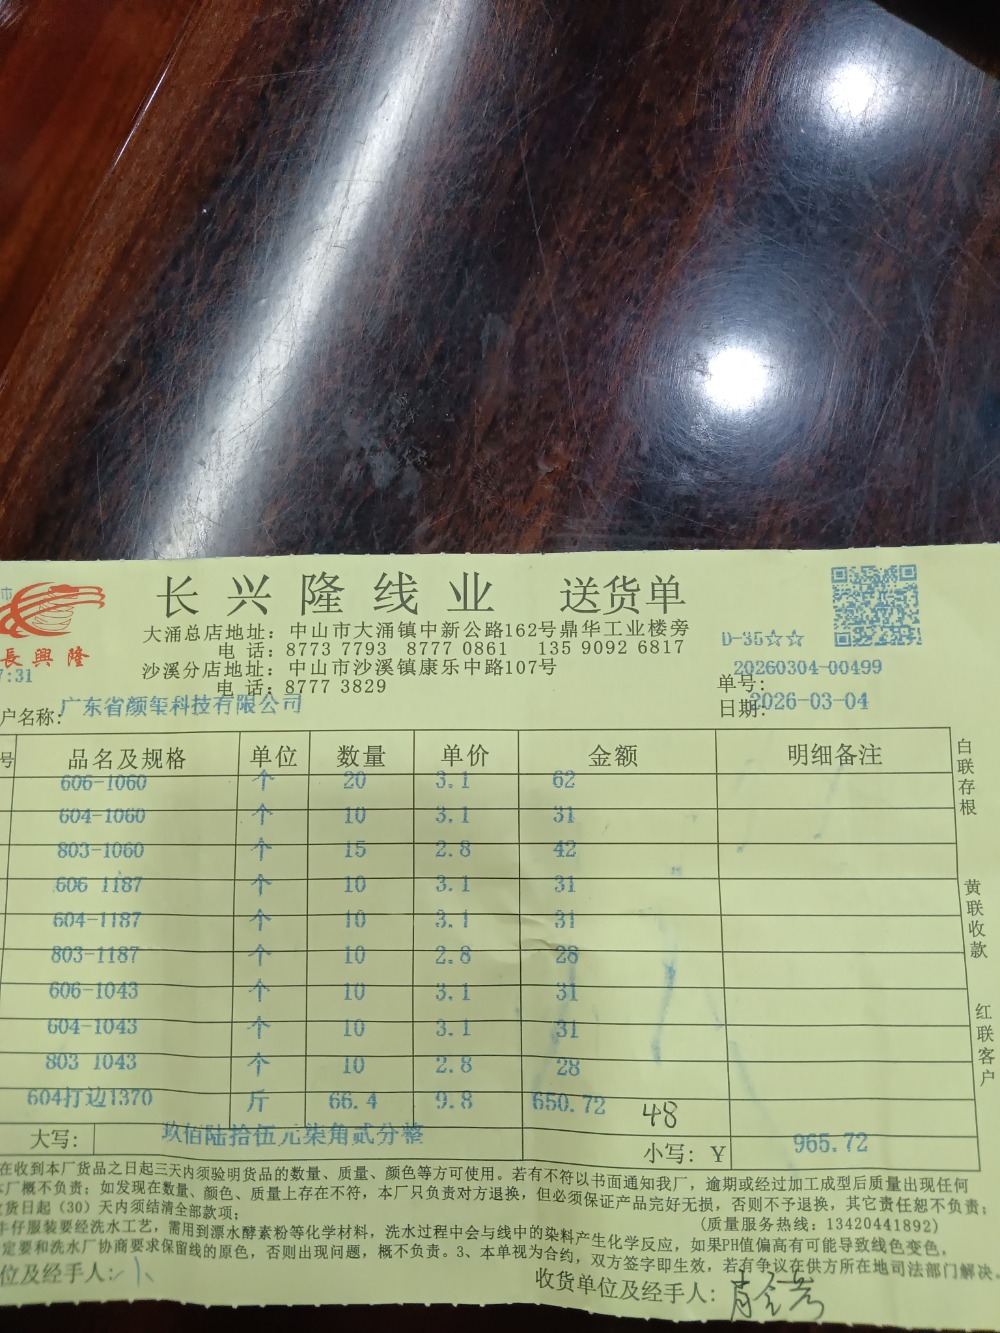 长兴隆线业 送货单
大涌总店地址：中山市大涌镇中新公路162号鼎华工业楼旁
电 话：8773 7793 8777 0861 135 9092 6817
D-35☆☆
長興隆
沙溪分店地址：中山市沙溪镇康乐中路107号
电 话：8777 3829
7:31
单号：20260304-00499
日期：2026-03-04
户名称：广东省颜玺科技有限公司
号 品名及规格 单位 数量 单价 金额 明细备注
606-1060 个 20 3.1 62
604-1060 个 10 3.1 31
803-1060 个 15 2.8 42
606 1187 个 10 3.1 31
604-1187 个 10 3.1 31
803-1187 个 10 2.8 28
606-1043 个 10 3.1 31
604-1043 个 10 3.1 31
803 1043 个 10 2.8 28
604打边1370 斤 66.4 9.8 650.72
48
大写：玖佰陆拾伍元柒角贰分整 小写：Y 965.72
白联存根
黄联收款
红联客户
在收到本厂货品之日起三天内须验明货品的数量、质量、颜色等方可使用。若有不符以书面通知我厂，逾期或经过加工成型后质量出现任何
本厂概不负责；如发现在数量、颜色、质量上存在不符，本厂只负责对方退换，但必须保证产品完好无损，否则不予退换，其它责任恕不负责；
货日起（30）天内须结清全部款项；
(质量服务热线：13420441892)
牛仔服装要经洗水工艺，需用到漂水酵素粉等化学材料，洗水过程中会与线中的染料产生化学反应，如果PH值偏高有可能导致线色变色，
定要和洗水厂协商要求保留线的原色，否则出现问题，概不负责。3、本单视为合约，双方签字即生效，若有争议在供方所在地司法部门解决。
位及经手人：
收货单位及经手人：